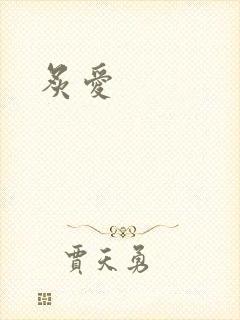 炙愛
賈天勇